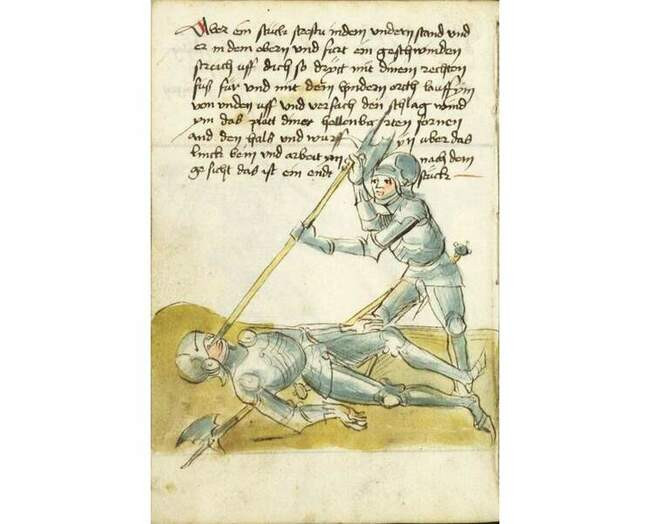 Aber ein stuck stestu in dem undern stand und
er in dem obern und furt ein geschwinden
streich uff dich so dryt mit dinem rechten
fuß für und mit dem hindern orth lauff ym
von unden uff und versach den schlag wind
ym das platt diner hellenbarten fornen
and den hals und wurff yn uber das
linck bein und arbeit ym nach dem
gesicht das ist ein endt stuck